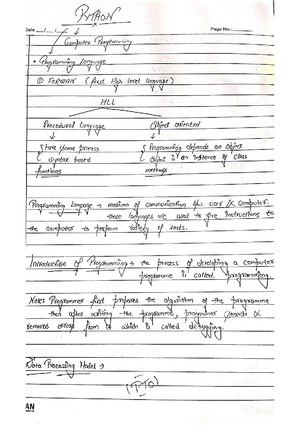 PYTHON
Date Page No.
Computer Programming
• Programming Language
① FORTRAN (first High level language)
HLL
Procedural language Object oriented
process Programming depends on object
syntax based object is an instance of class
functions methods
Programming Language → medium of communication b/w user & computer.
these languages are used to give instructions to
the computer to perform variety of tasks.
Introduction of Programming → the process of developing a computer
programme is called programming.
Note: Programmer first prepares the algorithm of the programme
then after writing the programme, programmer search &
removes errors from it which is called debugging.
Data Processing →
(PTO)
AN